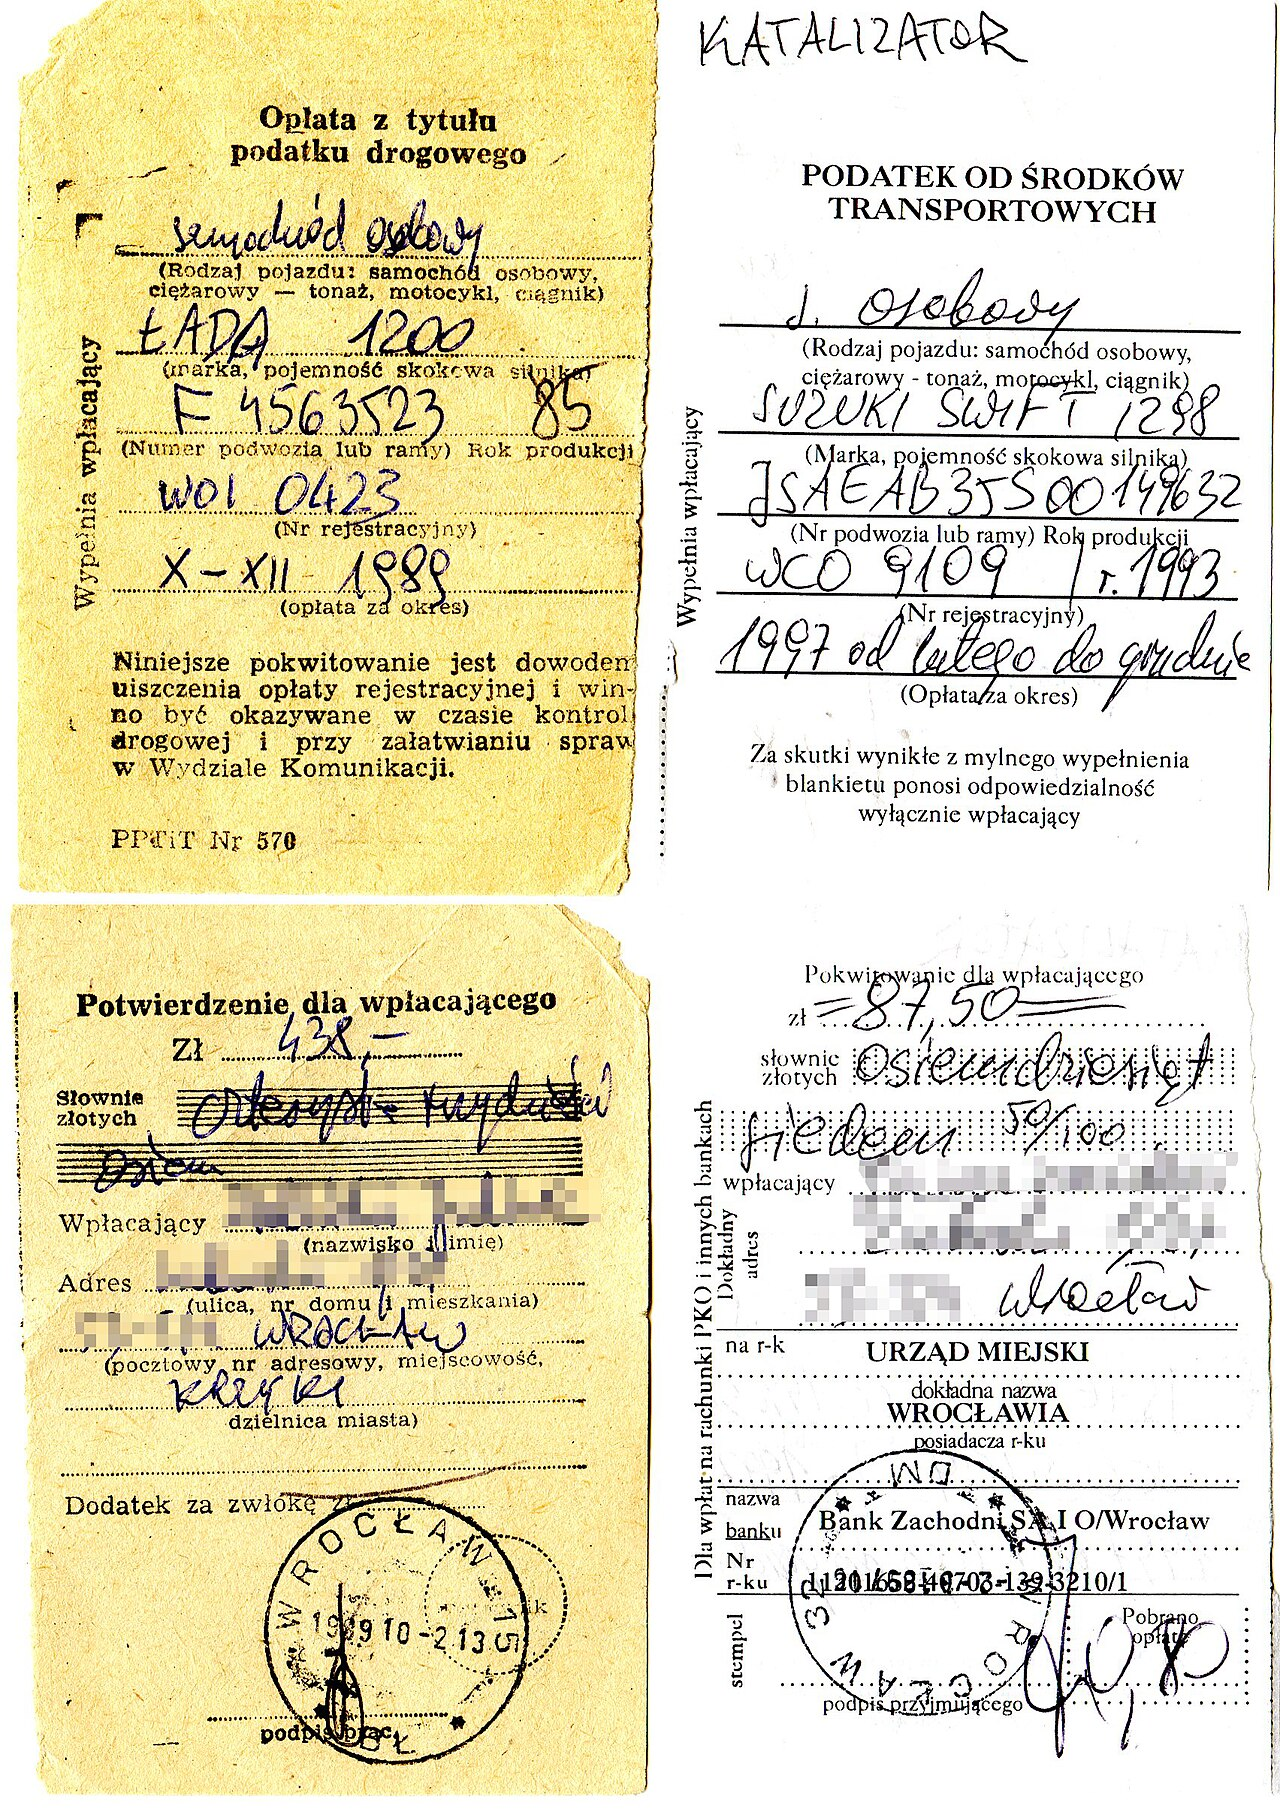 Opłata z tytułu
podatku drogowego
samochód osobowy
(Rodzaj pojazdu: samochód osobowy,
ciężarowy — tonaż, motocykl, ciągnik)
ŁADA 1200
(marka, pojemność skokowa silnika)
F 4563523 85
(Numer podwozia lub ramy) Rok produkcji
WOI 0423
(Nr rejestracyjny)
X-XII 1989
(opłata za okres)
Wypełnia wpłacający
Niniejsze pokwitowanie jest dowodem
uiszczenia opłaty rejestracyjnej i win-
no być okazywane w czasie kontrol
drogowej i przy załatwianiu spraw
w Wydziale Komunikacji.
PPTiT Nr 570
KATALIZATOR
PODATEK OD ŚRODKÓW
TRANSPORTOWYCH
s. osobowy
(Rodzaj pojazdu: samochód osobowy,
ciężarowy - tonaż, motocykl, ciągnik)
SUZUKI SWIFT 1298
(Marka, pojemność skokowa silnika)
JSAEAB35S00149632
(Nr podwozia lub ramy) Rok produkcji
WCO 9109 / r. 1993
(Nr rejestracyjny)
1997 od lutego do grudnia
(Opłata za okres)
Wypełnia wpłacający
Za skutki wynikłe z mylnego wypełnienia
blankietu ponosi odpowiedzialność
wyłącznie wpłacający
Potwierdzenie dla wpłacającego
Zł 438,-
Słownie
złotych
czterysta trzydzieści
osiem
Wpłacający
(nazwisko i imię)
Adres
(ulica, nr domu i mieszkania)
WROCŁAW
(pocztowy nr adresowy, miejscowość,
KRZYKI
dzielnica miasta)
Dodatek za zwłokę zł
WROCŁAW 15
1989 10 -2.13
podpis prac.
Pokwitowanie dla wpłacającego
zł =87,50=
słownie
złotych
osiemdziesiąt
siedem 50/100.
wpłacający
Dokładny
adres
Wrocław
na r-k
URZĄD MIEJSKI
dokładna nazwa
WROCŁAWIA
posiadacza r-ku
nazwa
banku
Bank Zachodni SA I O/Wrocław
Nr
r-ku
Dla wpłat na rachunki PKO i innych bankach
WROCŁAW 32
DM
stempel
Pobrano
opłatę
0,80
podpis przyjmującego